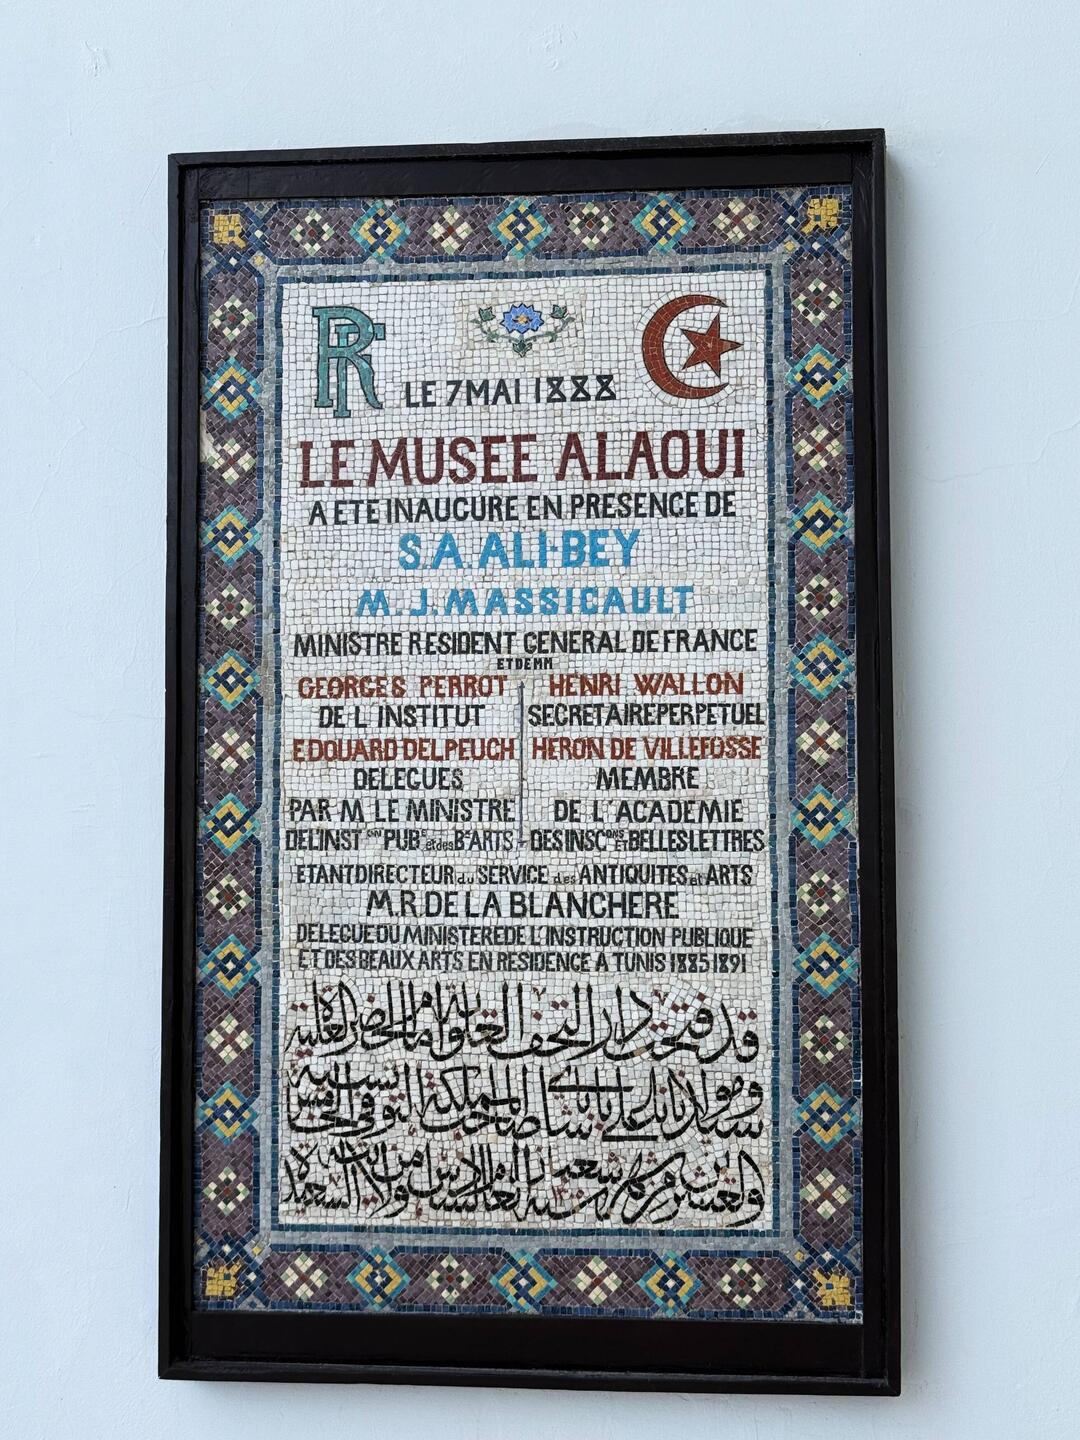 RF
LE 7 MAI 1888
LE MUSEE ALAOUI
A ETE INAUGURE EN PRESENCE DE
S.A. ALI-BEY
M. J. MASSICAULT
MINISTRE RESIDENT GENERAL DE FRANCE
ET DE MM
GEORGES PERROT HENRI WALLON
DE L'INSTITUT SECRETAIRE PERPETUEL
EDOUARD DELPEUCH HERON DE VILLEFOSSE
DELEGUES MEMBRE
PAR M. LE MINISTRE DE L'ACADEMIE
DE L'INST ON PUB E et des B X ARTS - DES INSC ONS ET BELLES LETTRES
ETANT DIRECTEUR du SERVICE des ANTIQUITES et ARTS
M.R. DE LA BLANCHERE
DELEGUE DU MINISTERE DE L'INSTRUCTION PUBLIQUE
ET DES BEAUX ARTS EN RESIDENCE A TUNIS 1885 1891
قد فتحت دار التحف العلوية
صاحب المملكة التونسية